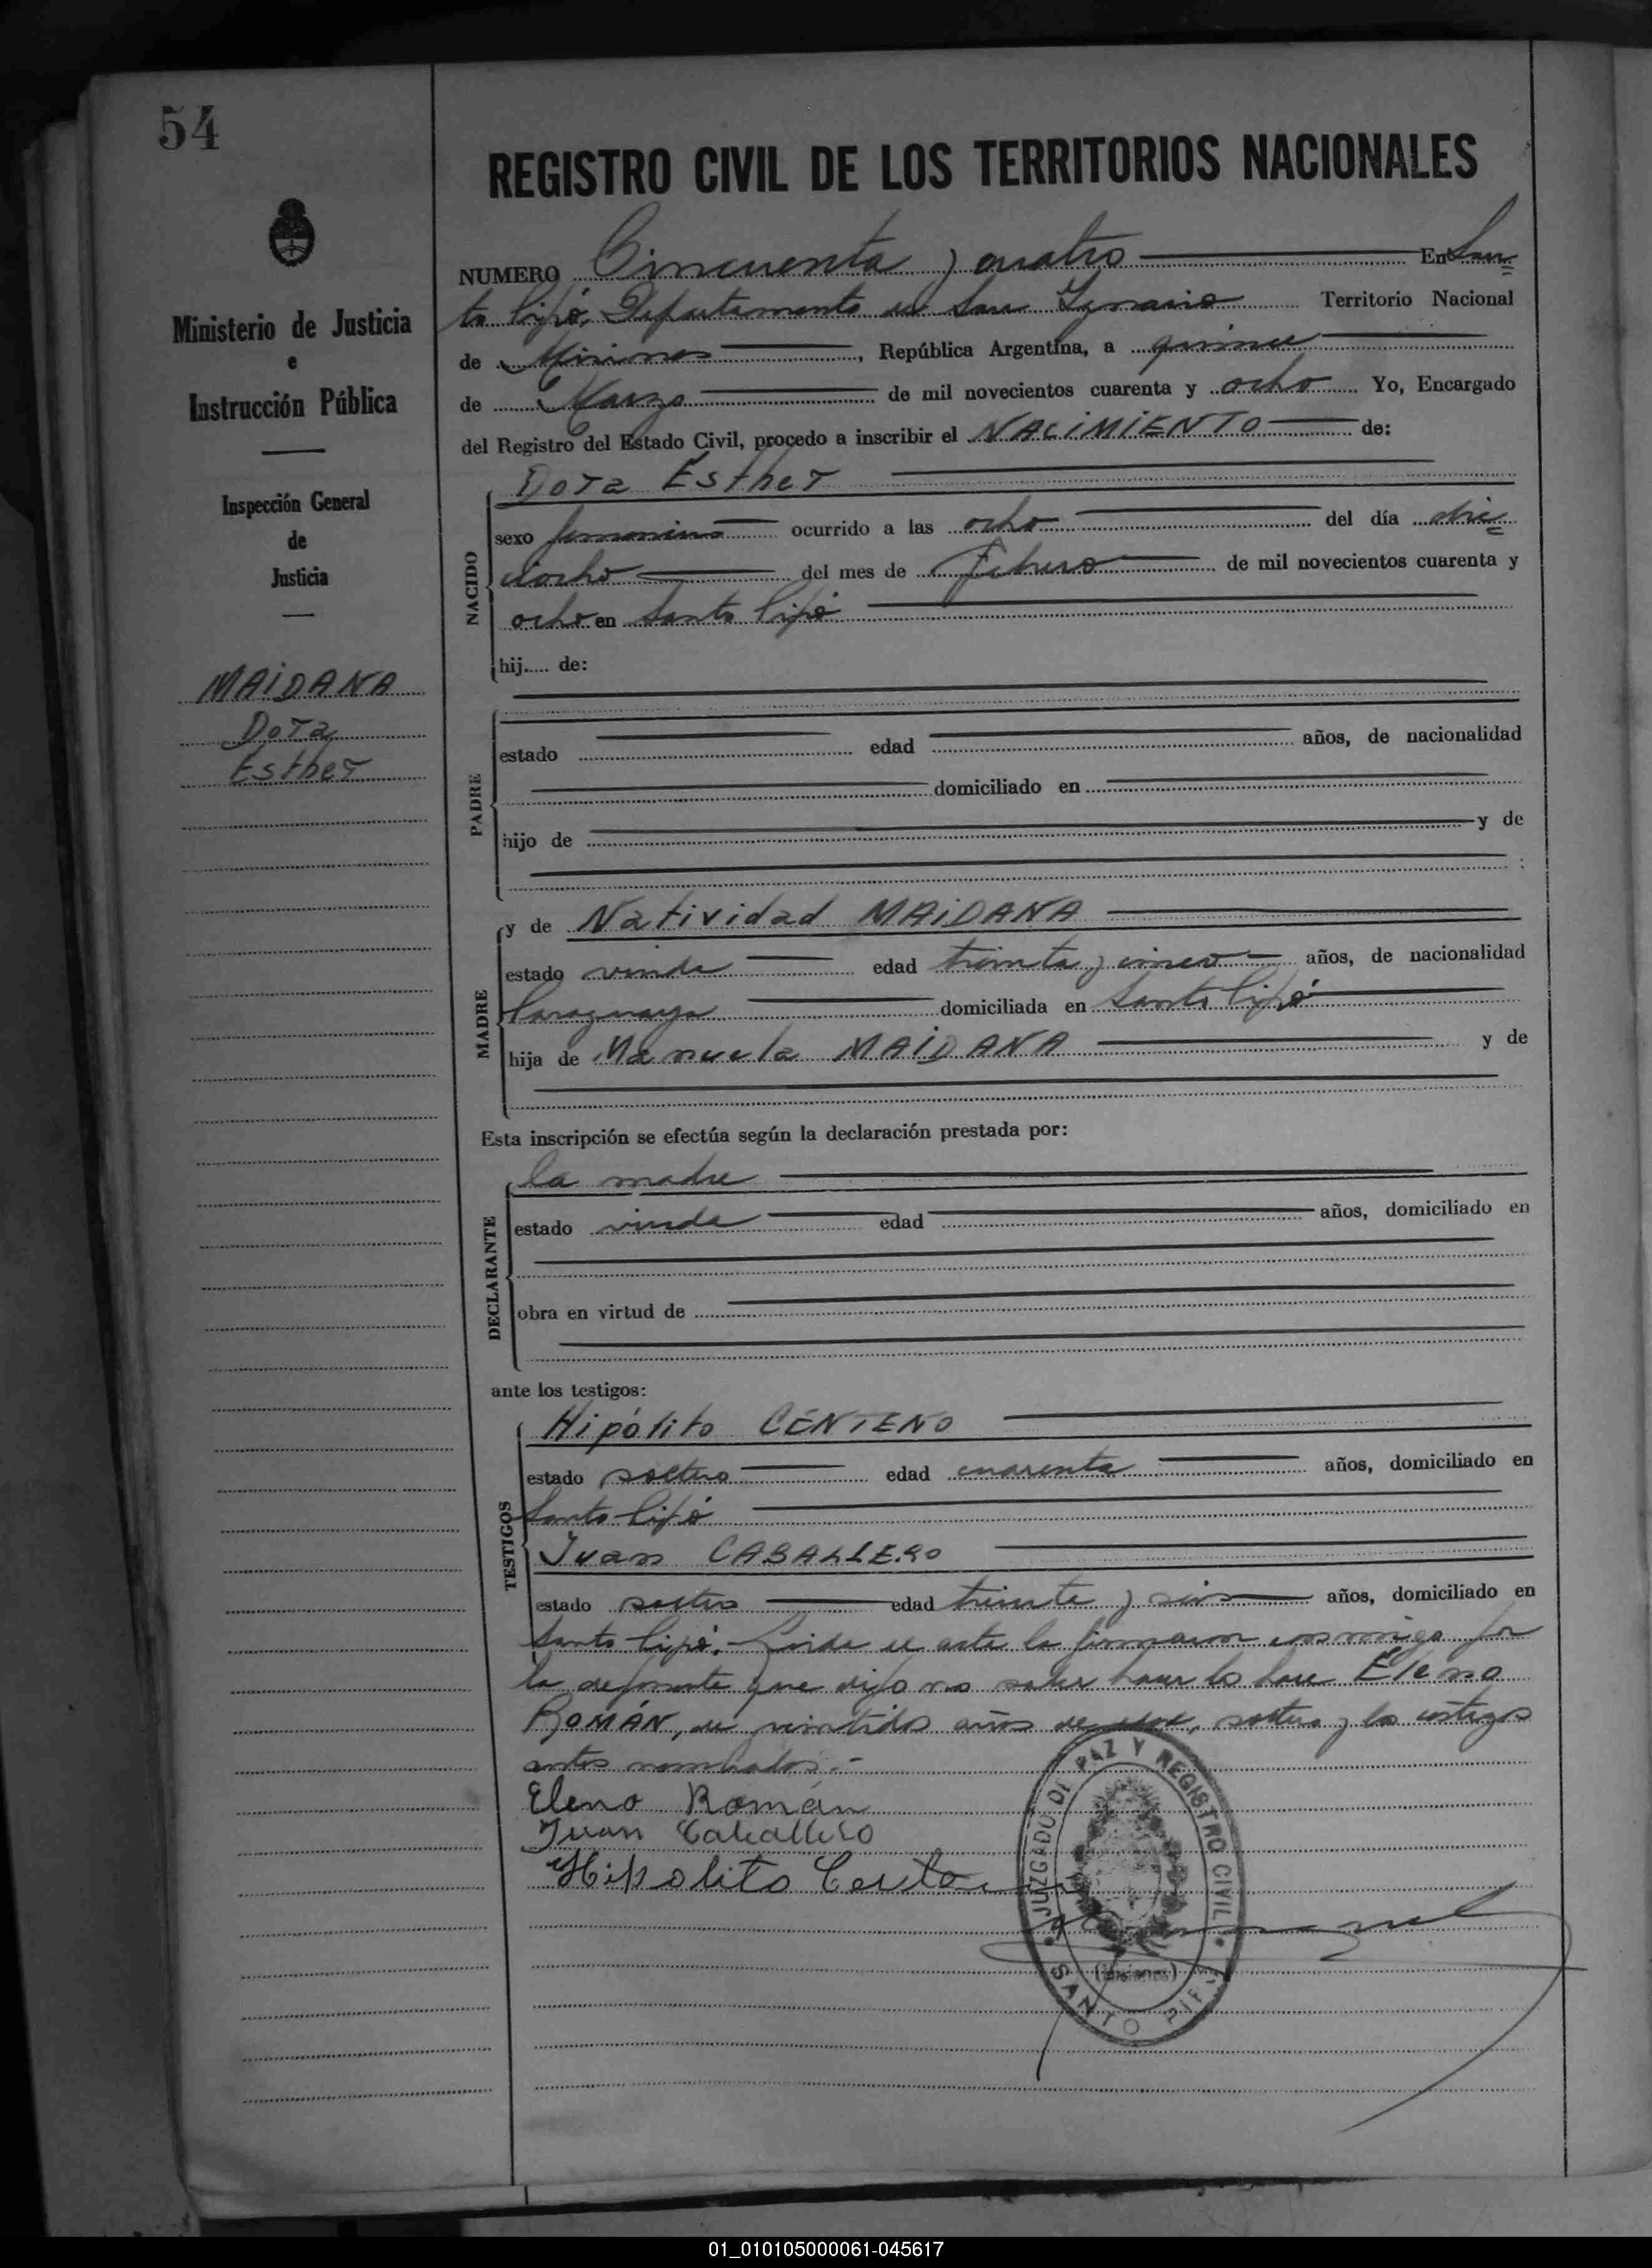 54
Ministerio de Justicia
e
Instrucción Pública
Inspección General
de
Justicia
MAIDANA
Dora
Esther
REGISTRO CIVIL DE LOS TERRITORIOS NACIONALES
NUMERO Cincuenta y cuatro En San=
to Pipó, Departamento de San Ignacio Territorio Nacional
de Misiones, República Argentina, a quince
de Marzo de mil novecientos cuarenta y ocho Yo, Encargado
del Registro del Estado Civil, procedo a inscribir el NACIMIENTO de:
NACIDO
Dora Esther
sexo femenino ocurrido a las ocho del día die=
ciocho del mes de Febrero de mil novecientos cuarenta y
ocho en Santo Pipó
hij..... de:
PADRE
estado edad años, de nacionalidad
domiciliado en
hijo de y de
MADRE
y de Natividad MAIDANA
estado viuda edad treinta y cinco años, de nacionalidad
Paraguaya domiciliada en Santo Pipó
hija de Manuela MAIDANA y de
Esta inscripción se efectúa según la declaración prestada por:
DECLARANTE
la madre
estado viuda edad años, domiciliado en
obra en virtud de
ante los testigos:
TESTIGOS
Hipólito CENTENO
estado soltero edad cuarenta años, domiciliado en
Santo Pipó
Juan CABALLERO
estado soltero edad treinta y seis años, domiciliado en
Santo Pipó. Leida el acta la firmaron conmigo por
la deponente que dijo no saber hacerlo hace Eleno
ROMÁN, de veintidos años de edad, soltero y los testigos
antes nombrados.-
Eleno Román
Juan Caballero
Hipolito Centeno
JUZGADO DE PAZ Y REGISTRO CIVIL
(Misiones)
SANTO PIPÓ
01_010105000061-045617